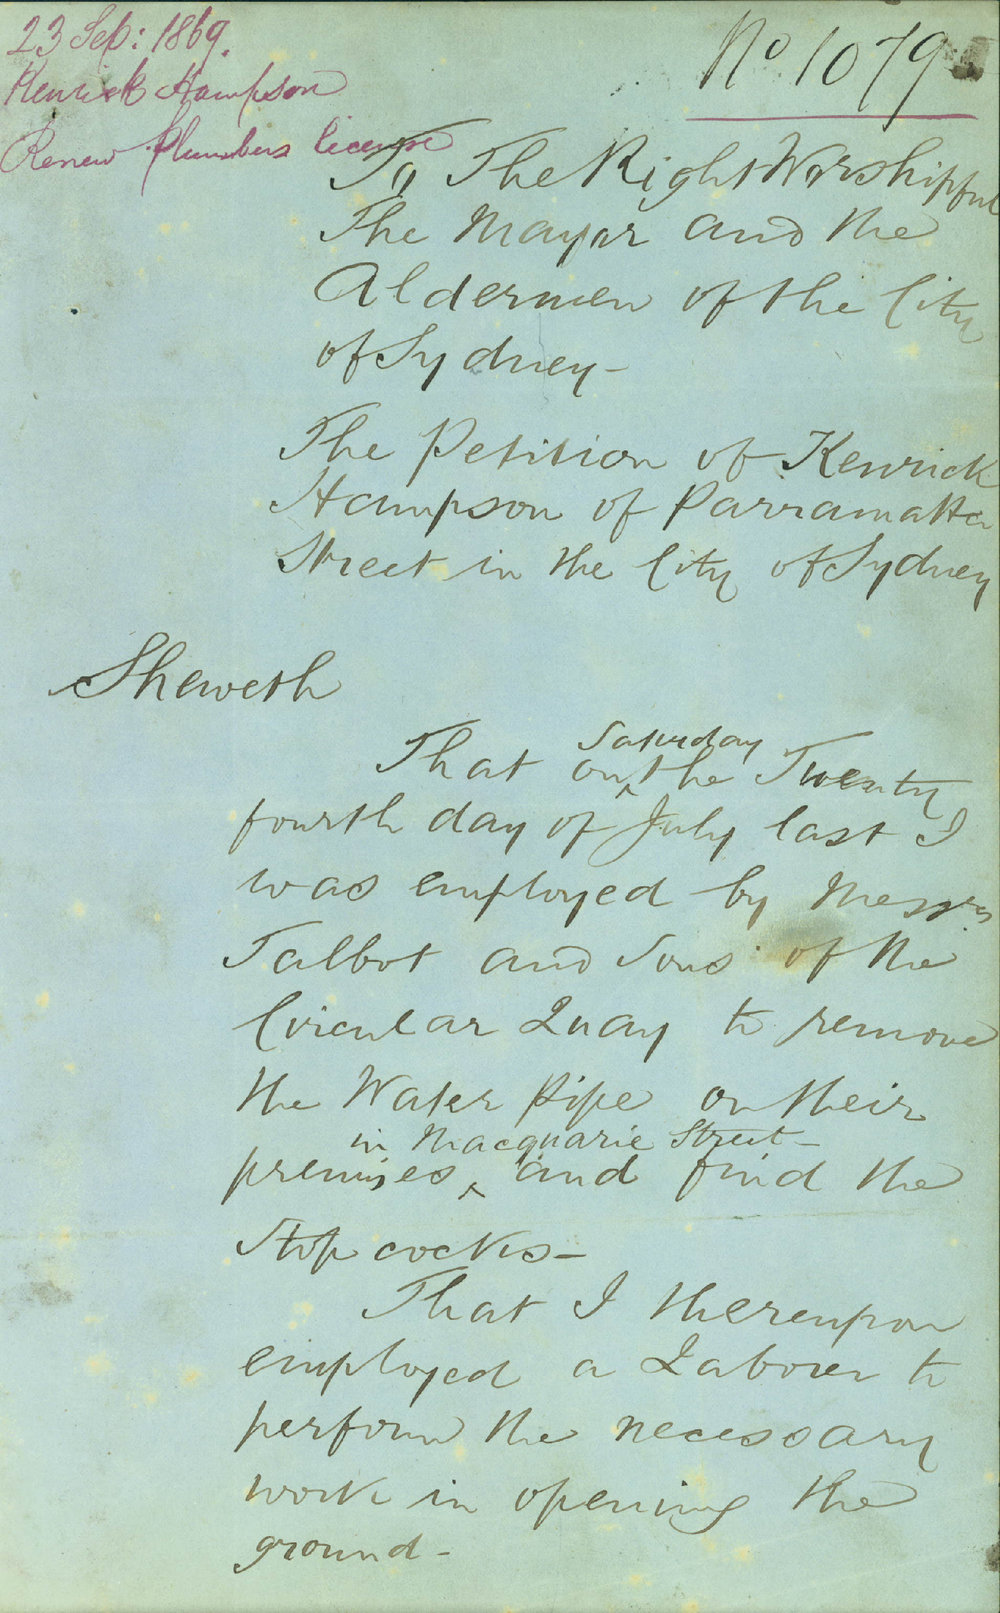 23 Sep: 1869.
Kenrick Hampson
Renew Plumbers license
No 1079
To The Right Worshipful
The Mayor and the
Aldermen of the City
of Sydney -
The Petition of Kenrick
Hampson of Parramatta
Street in the City of Sydney
Sheweth
That on ^ Saturday the Twenty
fourth day of July last I
was employed by Messrs
Talbot and Sons of the
Circular Quay to remove
the Water Pipe on their
premises ^ in Macquarie Street - and find the
Stop cocks -
That I thereupon
employed a Laborer to
perform the necessary
work in opening the
ground -